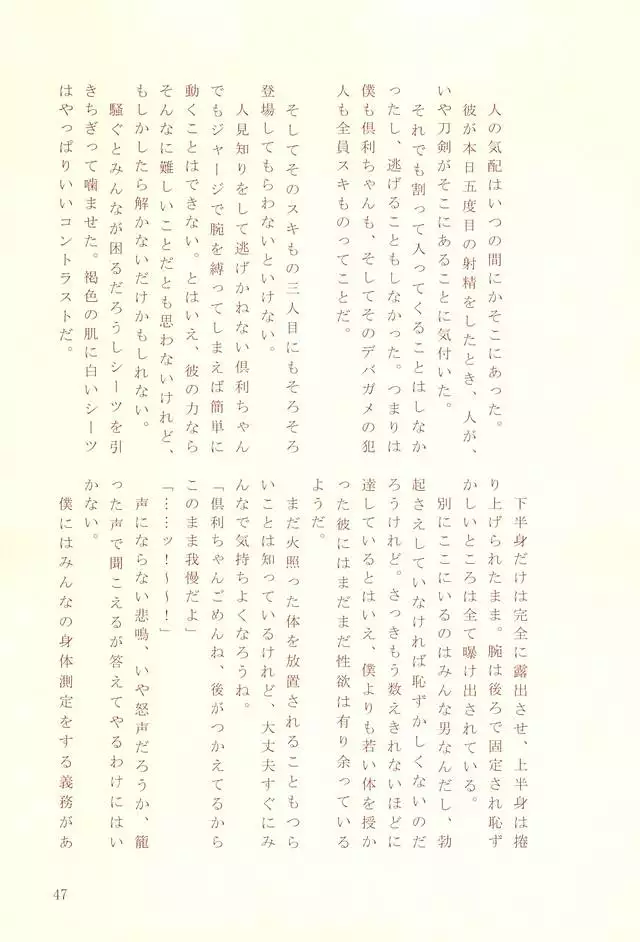 人の気配はいつの間にかそこにあった。
彼が本日五度目の射精をしたとき、人が、
いや刀剣がそこにあることに気付いた。
それでも割って入ってくることはしなか
ったし、逃げることもしなかった。つまりは
僕も倶利ちゃんも、そしてそのデバガメの犯
人も全員スキものってことだ。
そしてそのスキもの三人目にもそろそろ
登場してもらわないといけない。
人見知りをして逃げかねない倶利ちゃん
でもジャージで腕を縛ってしまえば簡単に
動くことはできない。とはいえ、彼の力なら
そんなに難しいことだとも思わないけれど、
もしかしたら解かないだけかもしれない。
騒ぐとみんなが困るだろうしシーツを引
きちぎって噛ませた。褐色の肌に白いシーツ
はやっぱりいいコントラストだ。
下半身だけは完全に露出させ、上半身は捲
り上げられたまま。腕は後ろで固定され恥ず
かしいところは全て曝け出されている。
別にここにいるのはみんな男なんだし、勃
起さえしていなければ恥ずかしくないのだ
ろうけれど。さっきもう数えきれないほどに
達しているとはいえ、僕よりも若い体を授か
った彼にはまだまだ性欲は有り余っている
ようだ。
まだ火照った体を放置されることもつら
いことは知っているけれど、大丈夫すぐにみ
んなで気持ちよくなろうね。
「倶利ちゃんごめんね、後がつかえてるから
このまま我慢だよ」
「……ッ！～～！」
声にならない悲鳴、いや怒声だろうか、籠
った声で聞こえるが答えてやるわけにはい
かない。
僕にはみんなの身体測定をする義務があ
47